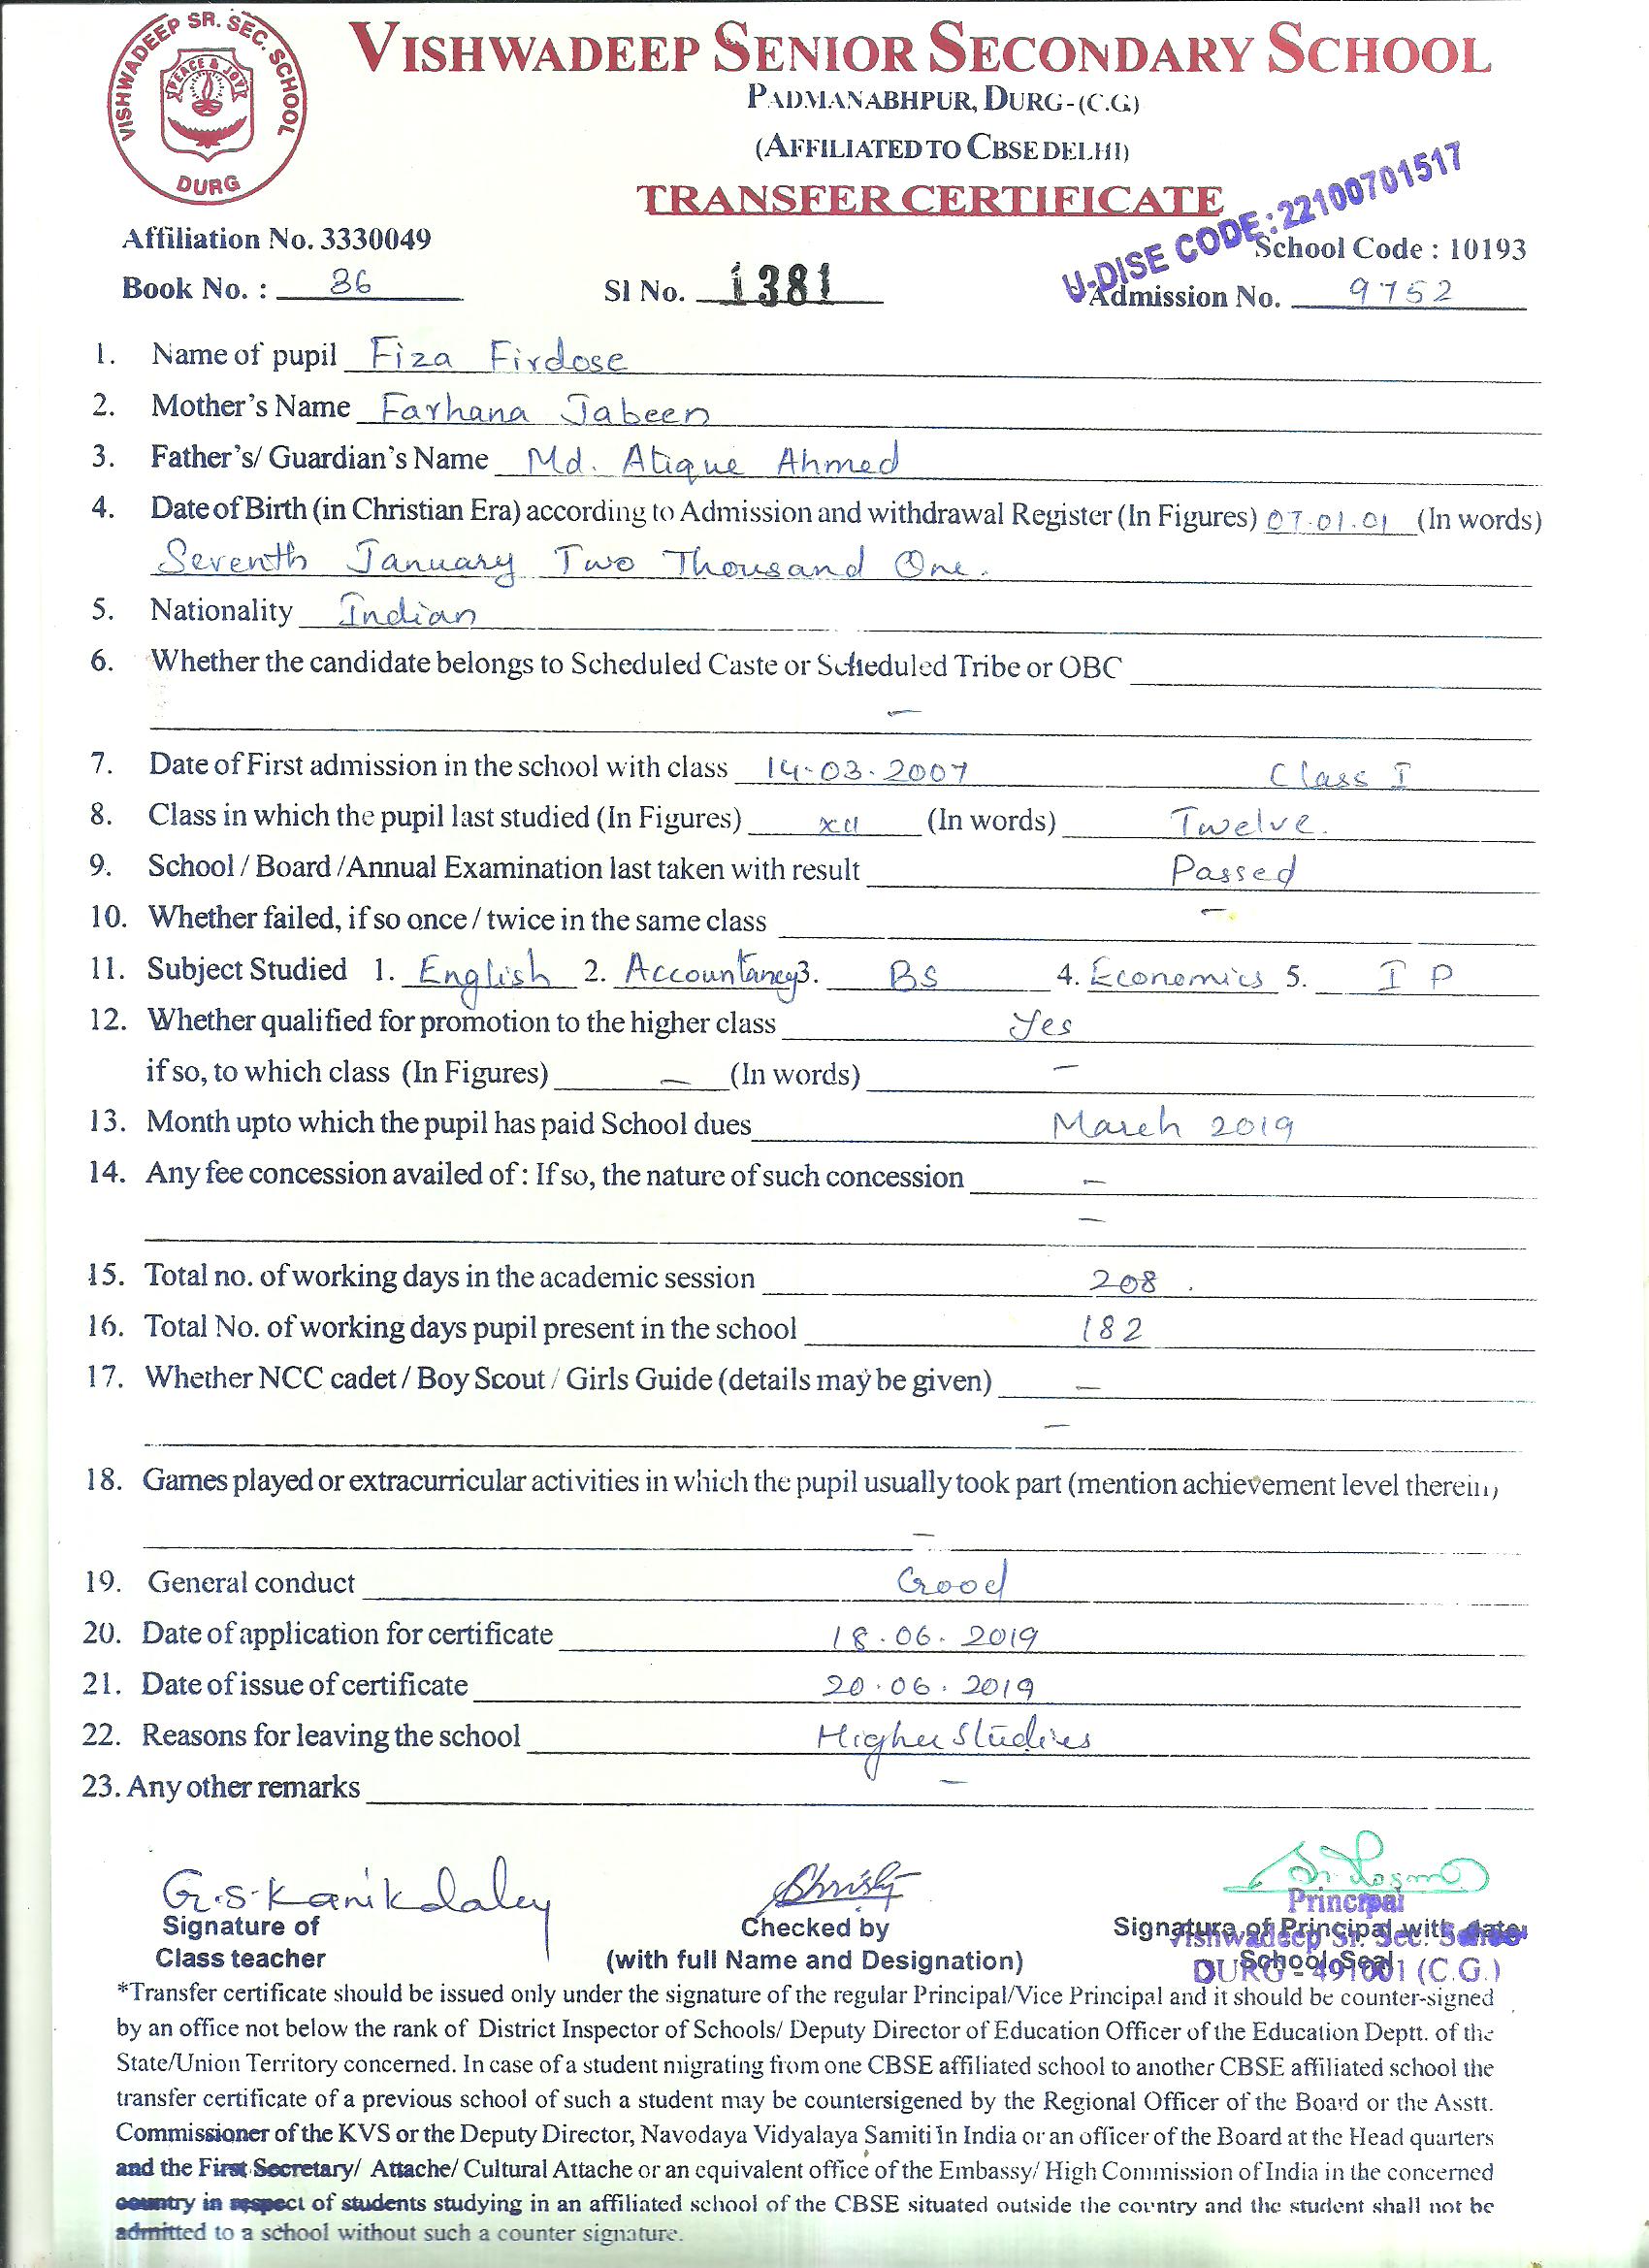 VISHWADEEP SR. SEC. SCHOOL
PEACE & JOY
DURG
VISHWADEEP SENIOR SECONDARY SCHOOL
PADMANABHPUR, DURG-(C.G.)
(AFFILIATED TO CBSE DELHI)
TRANSFER CERTIFICATE
U-DISE CODE:22100701517
Affiliation No. 3330049 School Code : 10193
Book No. : 36 Sl No. 1381 Admission No. 9752
1. Name of pupil Fiza Firdose
2. Mother's Name Farhana Jabeen
3. Father's/ Guardian's Name Md. Atique Ahmed
4. Date of Birth (in Christian Era) according to Admission and withdrawal Register (In Figures) 07.01.01 (In words)
Seventh January Two Thousand One.
5. Nationality Indian
6. Whether the candidate belongs to Scheduled Caste or Scheduled Tribe or OBC
–
7. Date of First admission in the school with class 14-03-2007 Class I
8. Class in which the pupil last studied (In Figures) XII (In words) Twelve.
9. School / Board /Annual Examination last taken with result Passed
10. Whether failed, if so once / twice in the same class –
11. Subject Studied 1. English 2. Accountancy 3. BS 4. Economics 5. I P
12. Whether qualified for promotion to the higher class Yes
if so, to which class (In Figures) – (In words) –
13. Month upto which the pupil has paid School dues March 2019
14. Any fee concession availed of : If so, the nature of such concession –
–
15. Total no. of working days in the academic session 208.
16. Total No. of working days pupil present in the school 182
17. Whether NCC cadet / Boy Scout / Girls Guide (details may be given) –
–
18. Games played or extracurricular activities in which the pupil usually took part (mention achievement level therein)
–
19. General conduct Good
20. Date of application for certificate 18.06.2019
21. Date of issue of certificate 20.06.2019
22. Reasons for leaving the school Higher Studies
23. Any other remarks –
G.S. Kanikdaley Christy
Principal
Signature of Checked by Signature of Principal with date
Vishwadeep Sr. Sec. School
Class teacher (with full Name and Designation) School Seal
DURG - 491001 (C.G.)
*Transfer certificate should be issued only under the signature of the regular Principal/Vice Principal and it should be counter-signed
by an office not below the rank of District Inspector of Schools/ Deputy Director of Education Officer of the Education Deptt. of the
State/Union Territory concerned. In case of a student migrating from one CBSE affiliated school to another CBSE affiliated school the
transfer certificate of a previous school of such a student may be countersigened by the Regional Officer of the Board or the Asstt.
Commissioner of the KVS or the Deputy Director, Navodaya Vidyalaya Samiti in India or an officer of the Board at the Head quarters
and the First Secretary/ Attache/ Cultural Attache or an equivalent office of the Embassy/ High Commission of India in the concerned
country in respect of students studying in an affiliated school of the CBSE situated outside the country and the student shall not be
admitted to a school without such a counter signature.